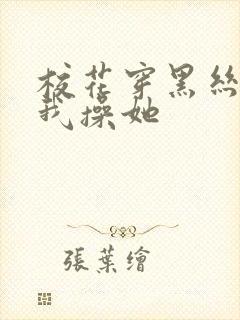 校花穿黑丝
我操她
張葉繪